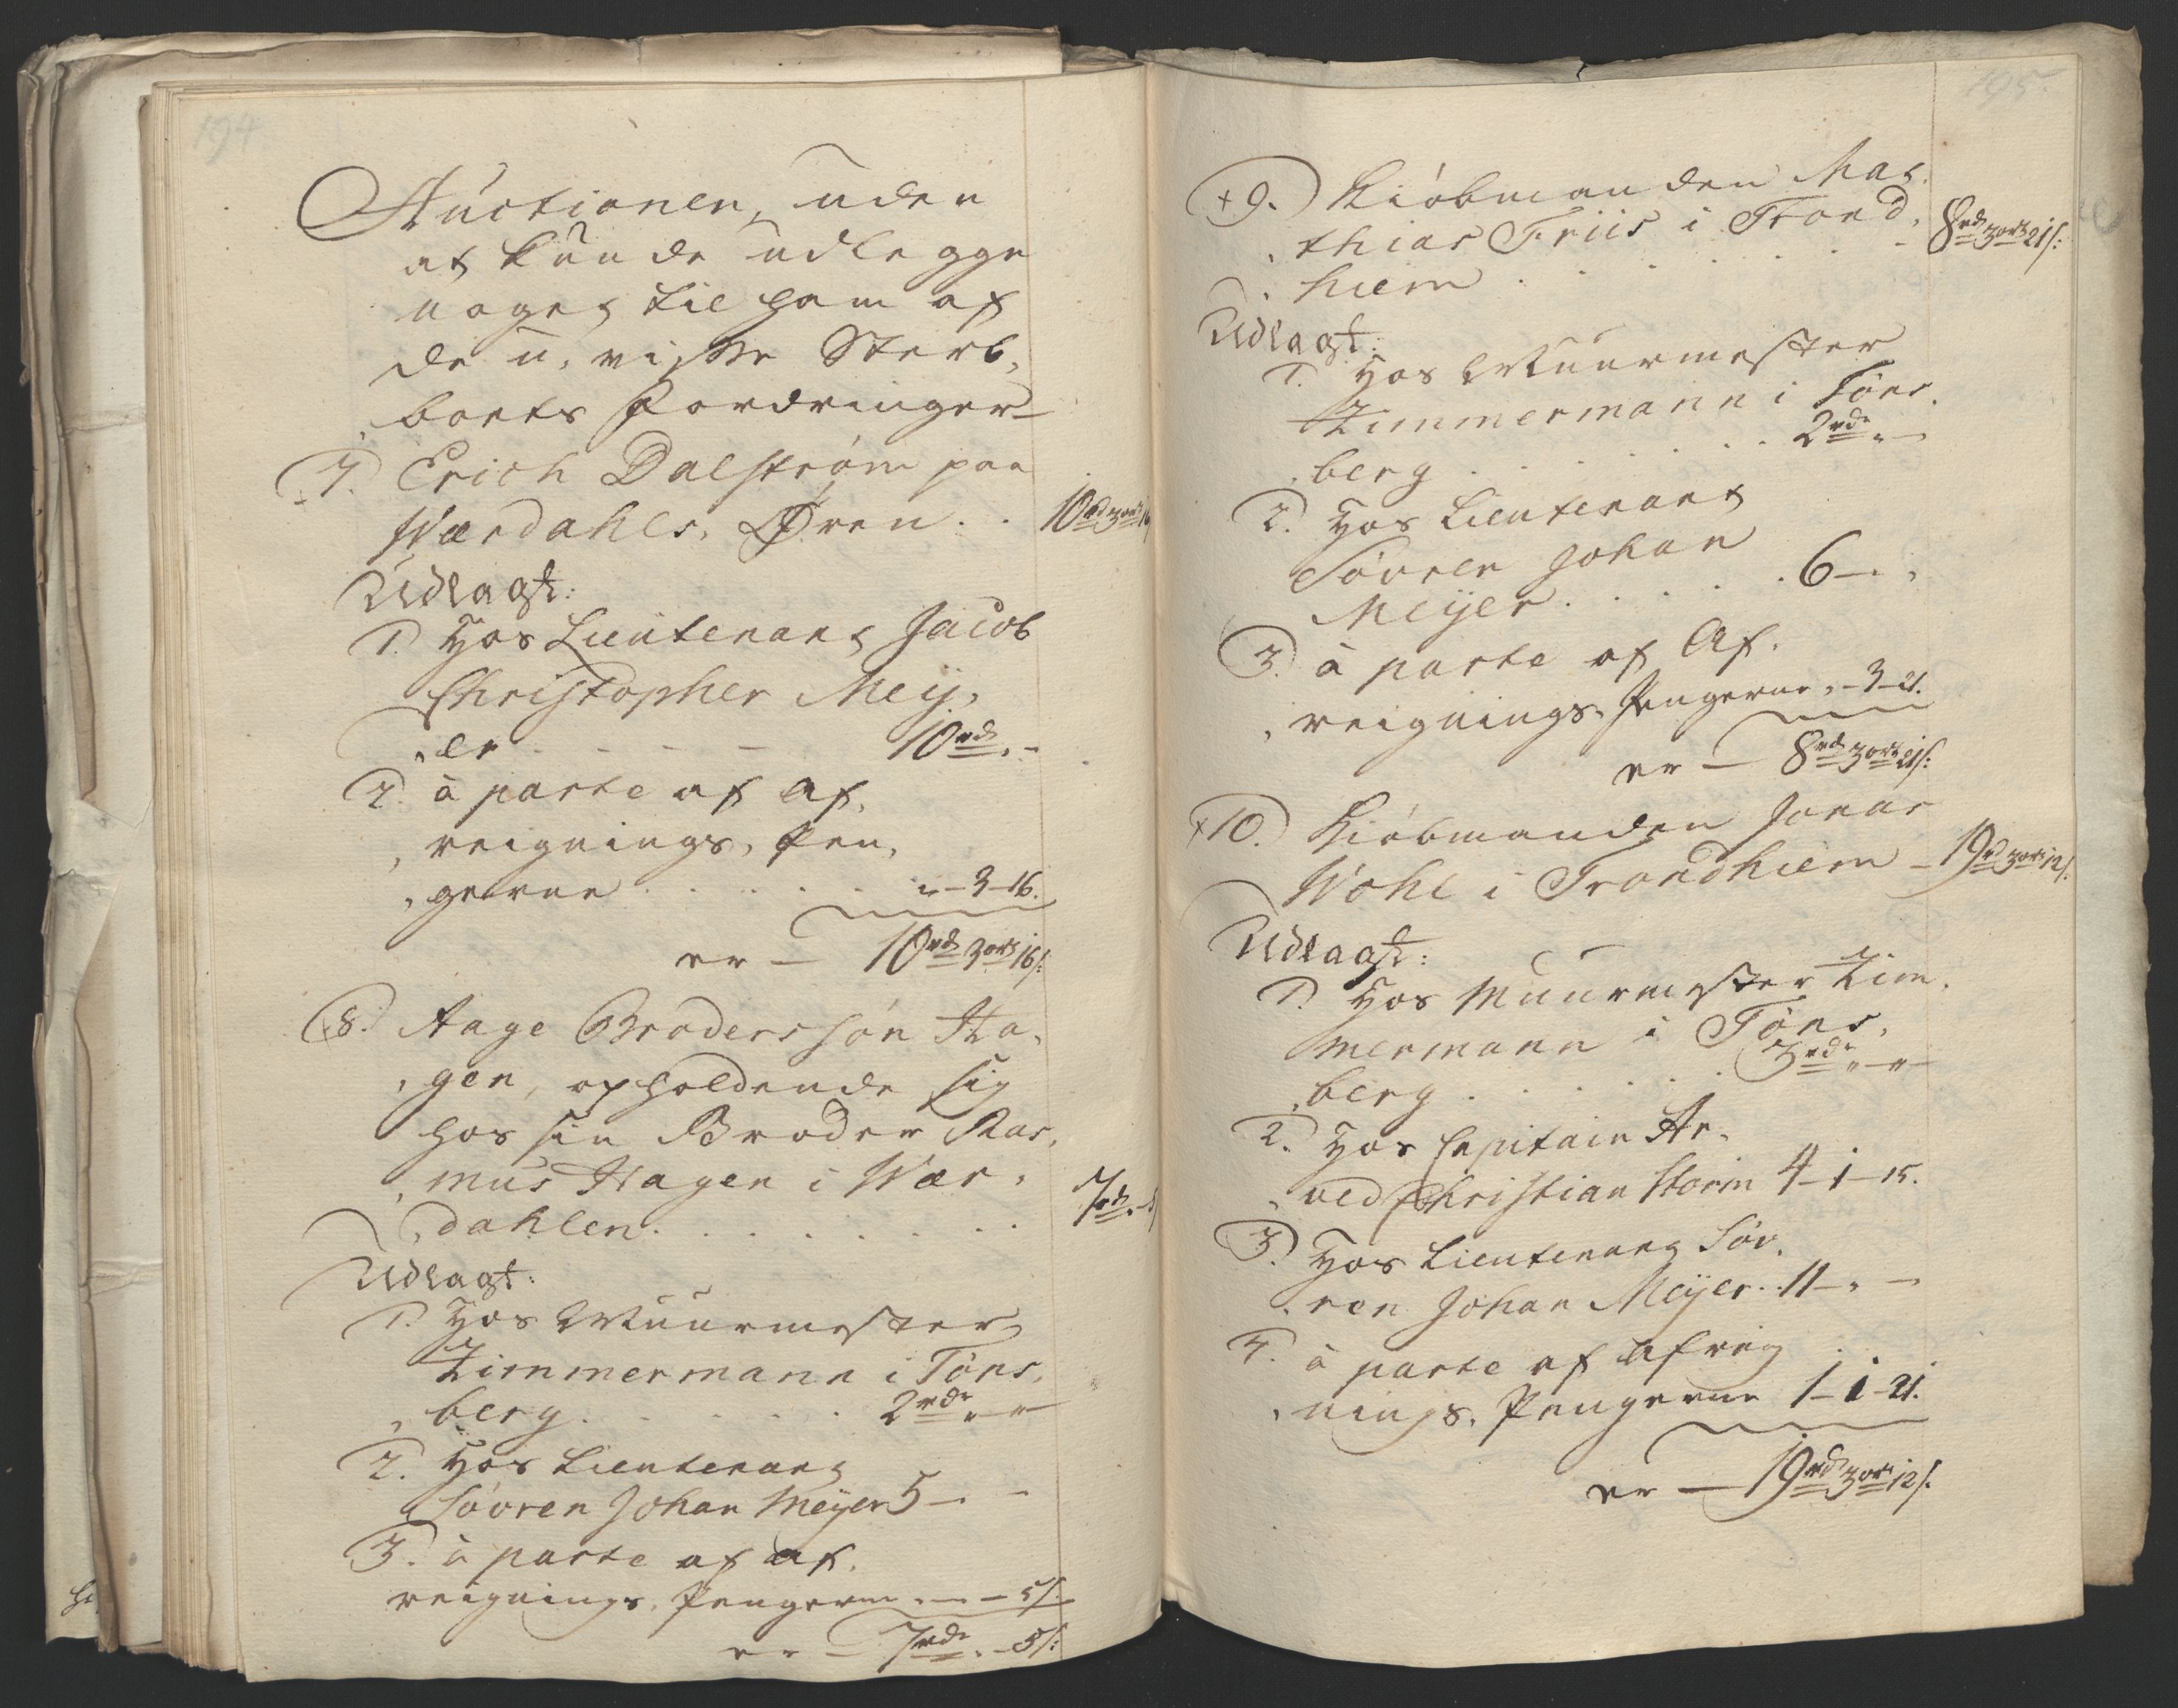 194
Auctionen, uden
at kunde udlegge
noget til ham af
de u-visse Sterb-
boets Fordringer
7. Erich Dalstrøm paa
Værdahls-Øren . . 10rd 3ort 16
Udlagt:
1. Hos Lieutenant Jacob
Christopher Mey-
er - - - - 10rd „ -
2. à parte af Af-
reignings-Pen-
gerne . . . . . „ - 3 - 16.
er — 10rd 3ort 16s:
8. Aage Brodersøn Ha-
gen, opholdende sig
hos sin Broder Ras-
mus Hagen i Vær-
dahlen . . . . . . . 7rd „ - 5
Udlagt:
1. Hos Muurmester
Zimmermann i Töns-
berg . . . . . . 2rd „ - „ -
2. Hos Lieutenant
Søvren Johan Meyer 5 - „ -
3. à parte af Af-
reignings-Pengerne „ - - 5s.
er — 7rd „ - 5s:
195.
+9. Kiøbmanden Mat-
thias Friis i Trond-
hiem . . . . . . . 8rd 3ort 21s:
Udlagt:
1. Hos Muurmester
Zimmermann i Töns-
berg . . . . . . 2rd „ -
2. Hos Lieutenant
Søvren Johan
Meyer . . . . . 6 - „ „
3. à parte af Af-
reignings-Pengerne „ - 3 - 21.
er — 8rd 3ort 21s:
+10. Kiøbmanden Jonas
Wohl i Trondhiem - 19rd 3ort 12s.
Udlagt:
1. Hos Muurmester Zim-
mermann i Töns-
berg . . . . . . 3rd „ - „ -
2. Hos Capitain Ar-
ved Christian Storm 4 - 1 - 15.
3. Hos Lieutenant Søv-
ren Johan Meyer . . 11 - „ -
4. à parte af Afreig-
nings-Pengerne 1 - 1 - 21.
er — 19rd 3ort 12s: